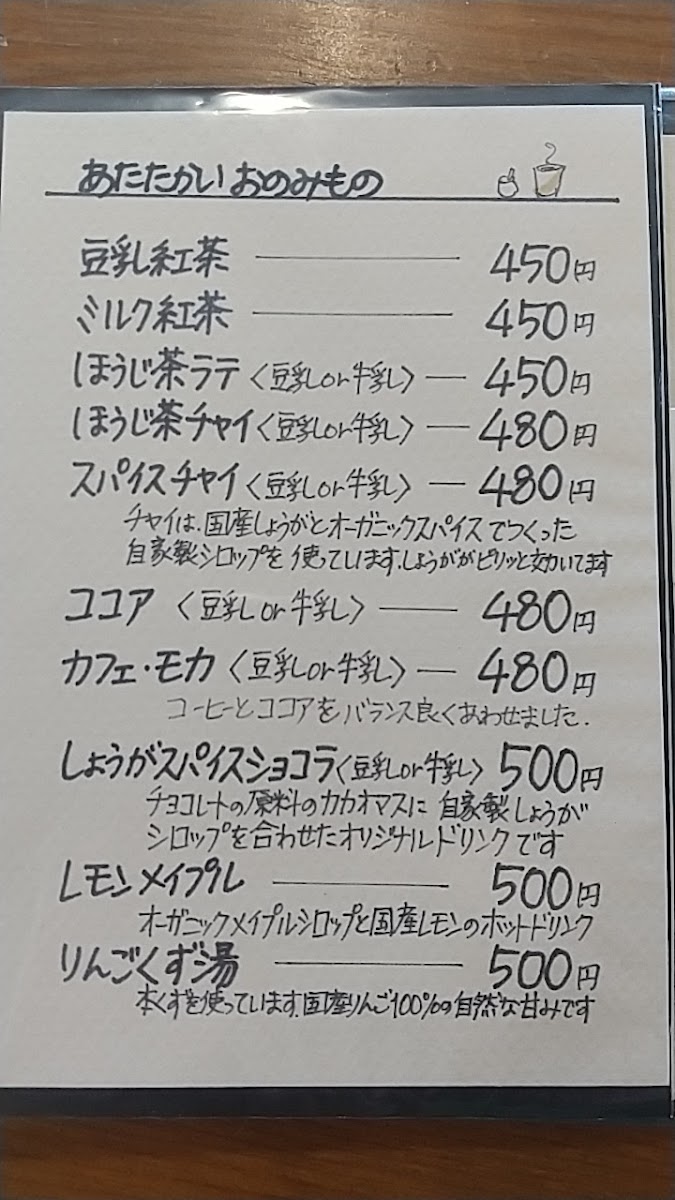 あたたかいおのみもの
豆乳紅茶 450円
ミルク紅茶 450円
ほうじ茶ラテ〈豆乳or牛乳〉 450円
ほうじ茶チャイ〈豆乳or牛乳〉 480円
スパイスチャイ〈豆乳or牛乳〉 480円
チャイは、国産しょうがとオーガニックスパイスでつくった
自家製シロップを使っています。しょうががピリッと効いてます
ココア 〈豆乳or牛乳〉 480円
カフェ・モカ〈豆乳or牛乳〉 480円
コーヒーとココアをバランス良くあわせました.
しょうがスパイスショコラ〈豆乳or牛乳〉 500円
チョコレートの原料のカカオマスに自家製しょうが
シロップを合わせたオリジナルドリンクです
レモンメイプル 500円
オーガニックメイプルシロップと国産レモンのホットドリンク
りんごくず湯 500円
本くずを使っています.国産りんご100%の自然な甘みです